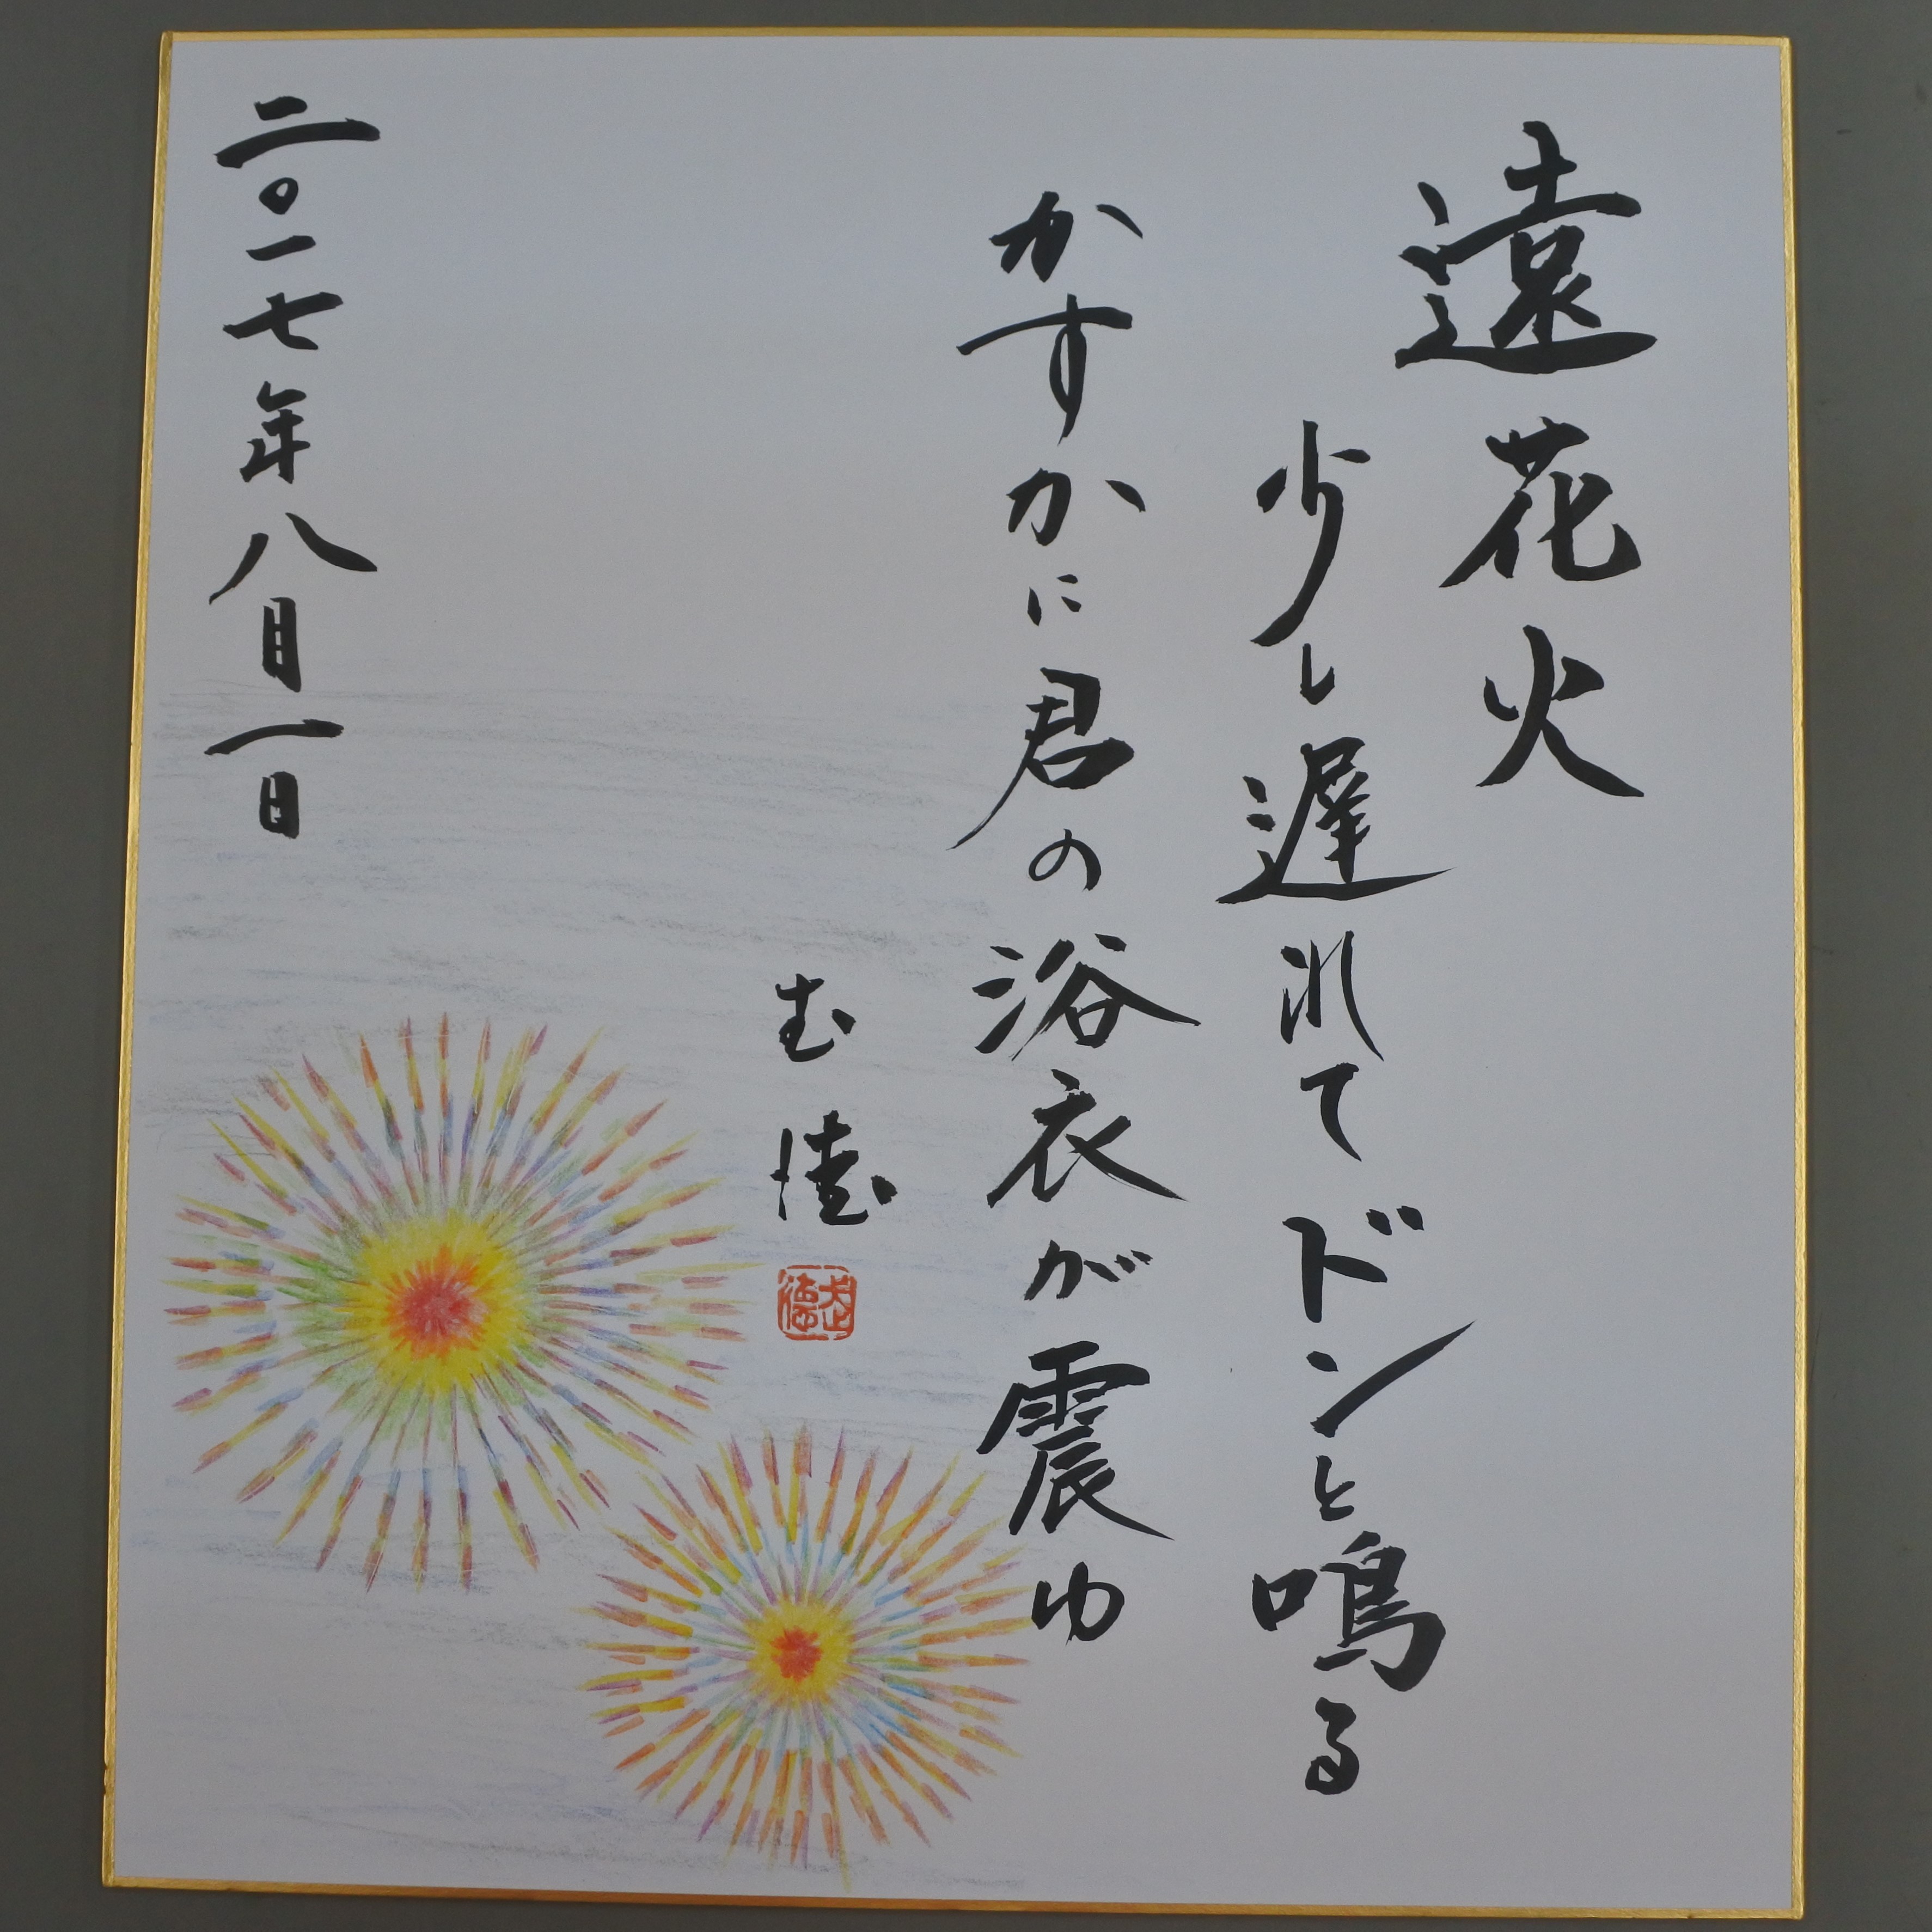 遠花火
少し遅れてドンと鳴る
かすかに君の浴衣が震ゆ
武徳
武徳
二〇一七年八月一日